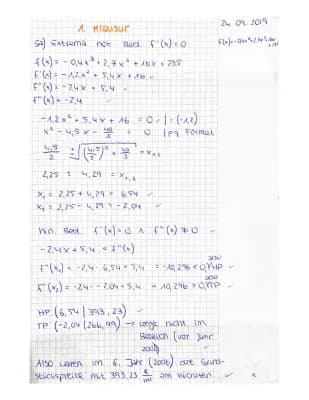 1. Klausur
24.09.2019
5a) Extrema not. Bed. f'(x)=0
f(x) = -0,4x³ + 2,7x² + 16x + 235
f'(x) = -1,2x² + 5,4x + 16
f''(x) = -2,4x + 5,4
f'''(x) = -2,4
-1,2x² + 5,4x + 16 = 0 | :(-1,2)
x² - 4,5x - 40/3 = 0 | pq Formel
4,5/2 ± √((4,5/2)² + 40/3) = x₁,₂
2,25 ± 4,29 = x₁,₂
x₁ = 2,25 + 4,29 = 6,54
x₂ = 2,25 - 4,29 = -2,04
hin. Bed. f'(x)=0 ∧ f''(x) ≠ 0
-2,4x + 5,4 = f''(x)
f''(x₁) = -2,4 · 6,54 + 5,4 = -10,296 < 0, also HP
f''(x₂) = -2,4 · -2,04 + 5,4 = 10,296 > 0, also TP
HP (6,54 | 393,23)
TP (-2,04 | 266,99) → liegt nicht im
Bereich (vor Jahr
2000)
Also waren im 6. Jahr (2006) die Grund-
stückspreise mit 393,23 €/m² am höchsten.